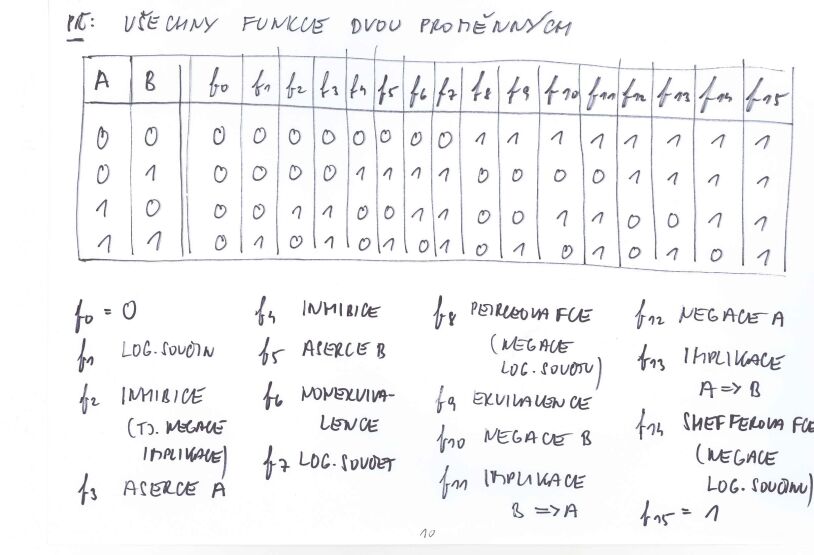 PŘ: VŠECHNY FUNKCE DVOU PROMĚNNÝCH
A B f0 f1 f2 f3 f4 f5 f6 f7 f8 f9 f10 f11 f12 f13 f14 f15
0 0 0 0 0 0 0 0 0 0 1 1 1 1 1 1 1 1
0 1 0 0 0 0 1 1 1 1 0 0 0 0 1 1 1 1
1 0 0 0 1 1 0 0 1 1 0 0 1 1 0 0 1 1
1 1 0 1 0 1 0 1 0 1 0 1 0 1 0 1 0 1
f0 = 0
f1 LOG. SOUČIN
f2 INHIBICE
(TJ. NEGACE
IMPLIKACE)
f3 ASERCE A
f4 INHIBICE
f5 ASERCE B
f6 NONEKVIVA-
LENCE
f7 LOG. SOUČET
f8 PEIRCEOVA FCE
(NEGACE
LOG. SOUČTU)
f9 EKVIVALENCE
f10 NEGACE B
f11 IMPLIKACE
B => A
f12 NEGACE A
f13 IMPLIKACE
A => B
f14 SHEFFEROVA FCE
(NEGACE
LOG. SOUČINU)
f15 = 1
10